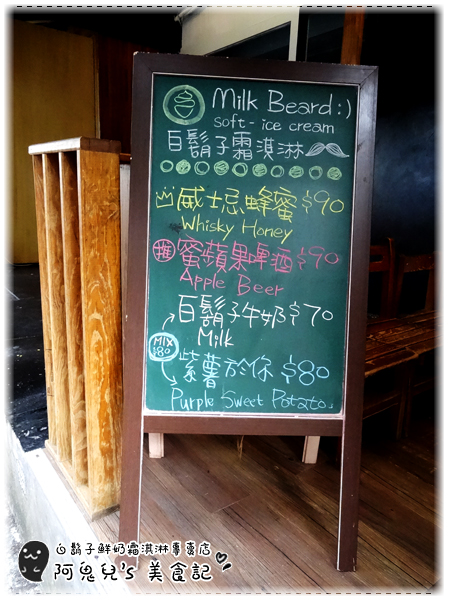 Milk Beard:)
soft-ice cream
白鬍子霜淇淋
威士忌蜂蜜$90
Whisky Honey
推 蜜蘋果啤酒$90
Apple Beer
白鬍子牛奶$70
Milk
MIX
$80
紫薯於你 $80
Purple Sweet Potato
白鬍子鮮奶霜淇淋專賣店
阿鬼兒's 美食記